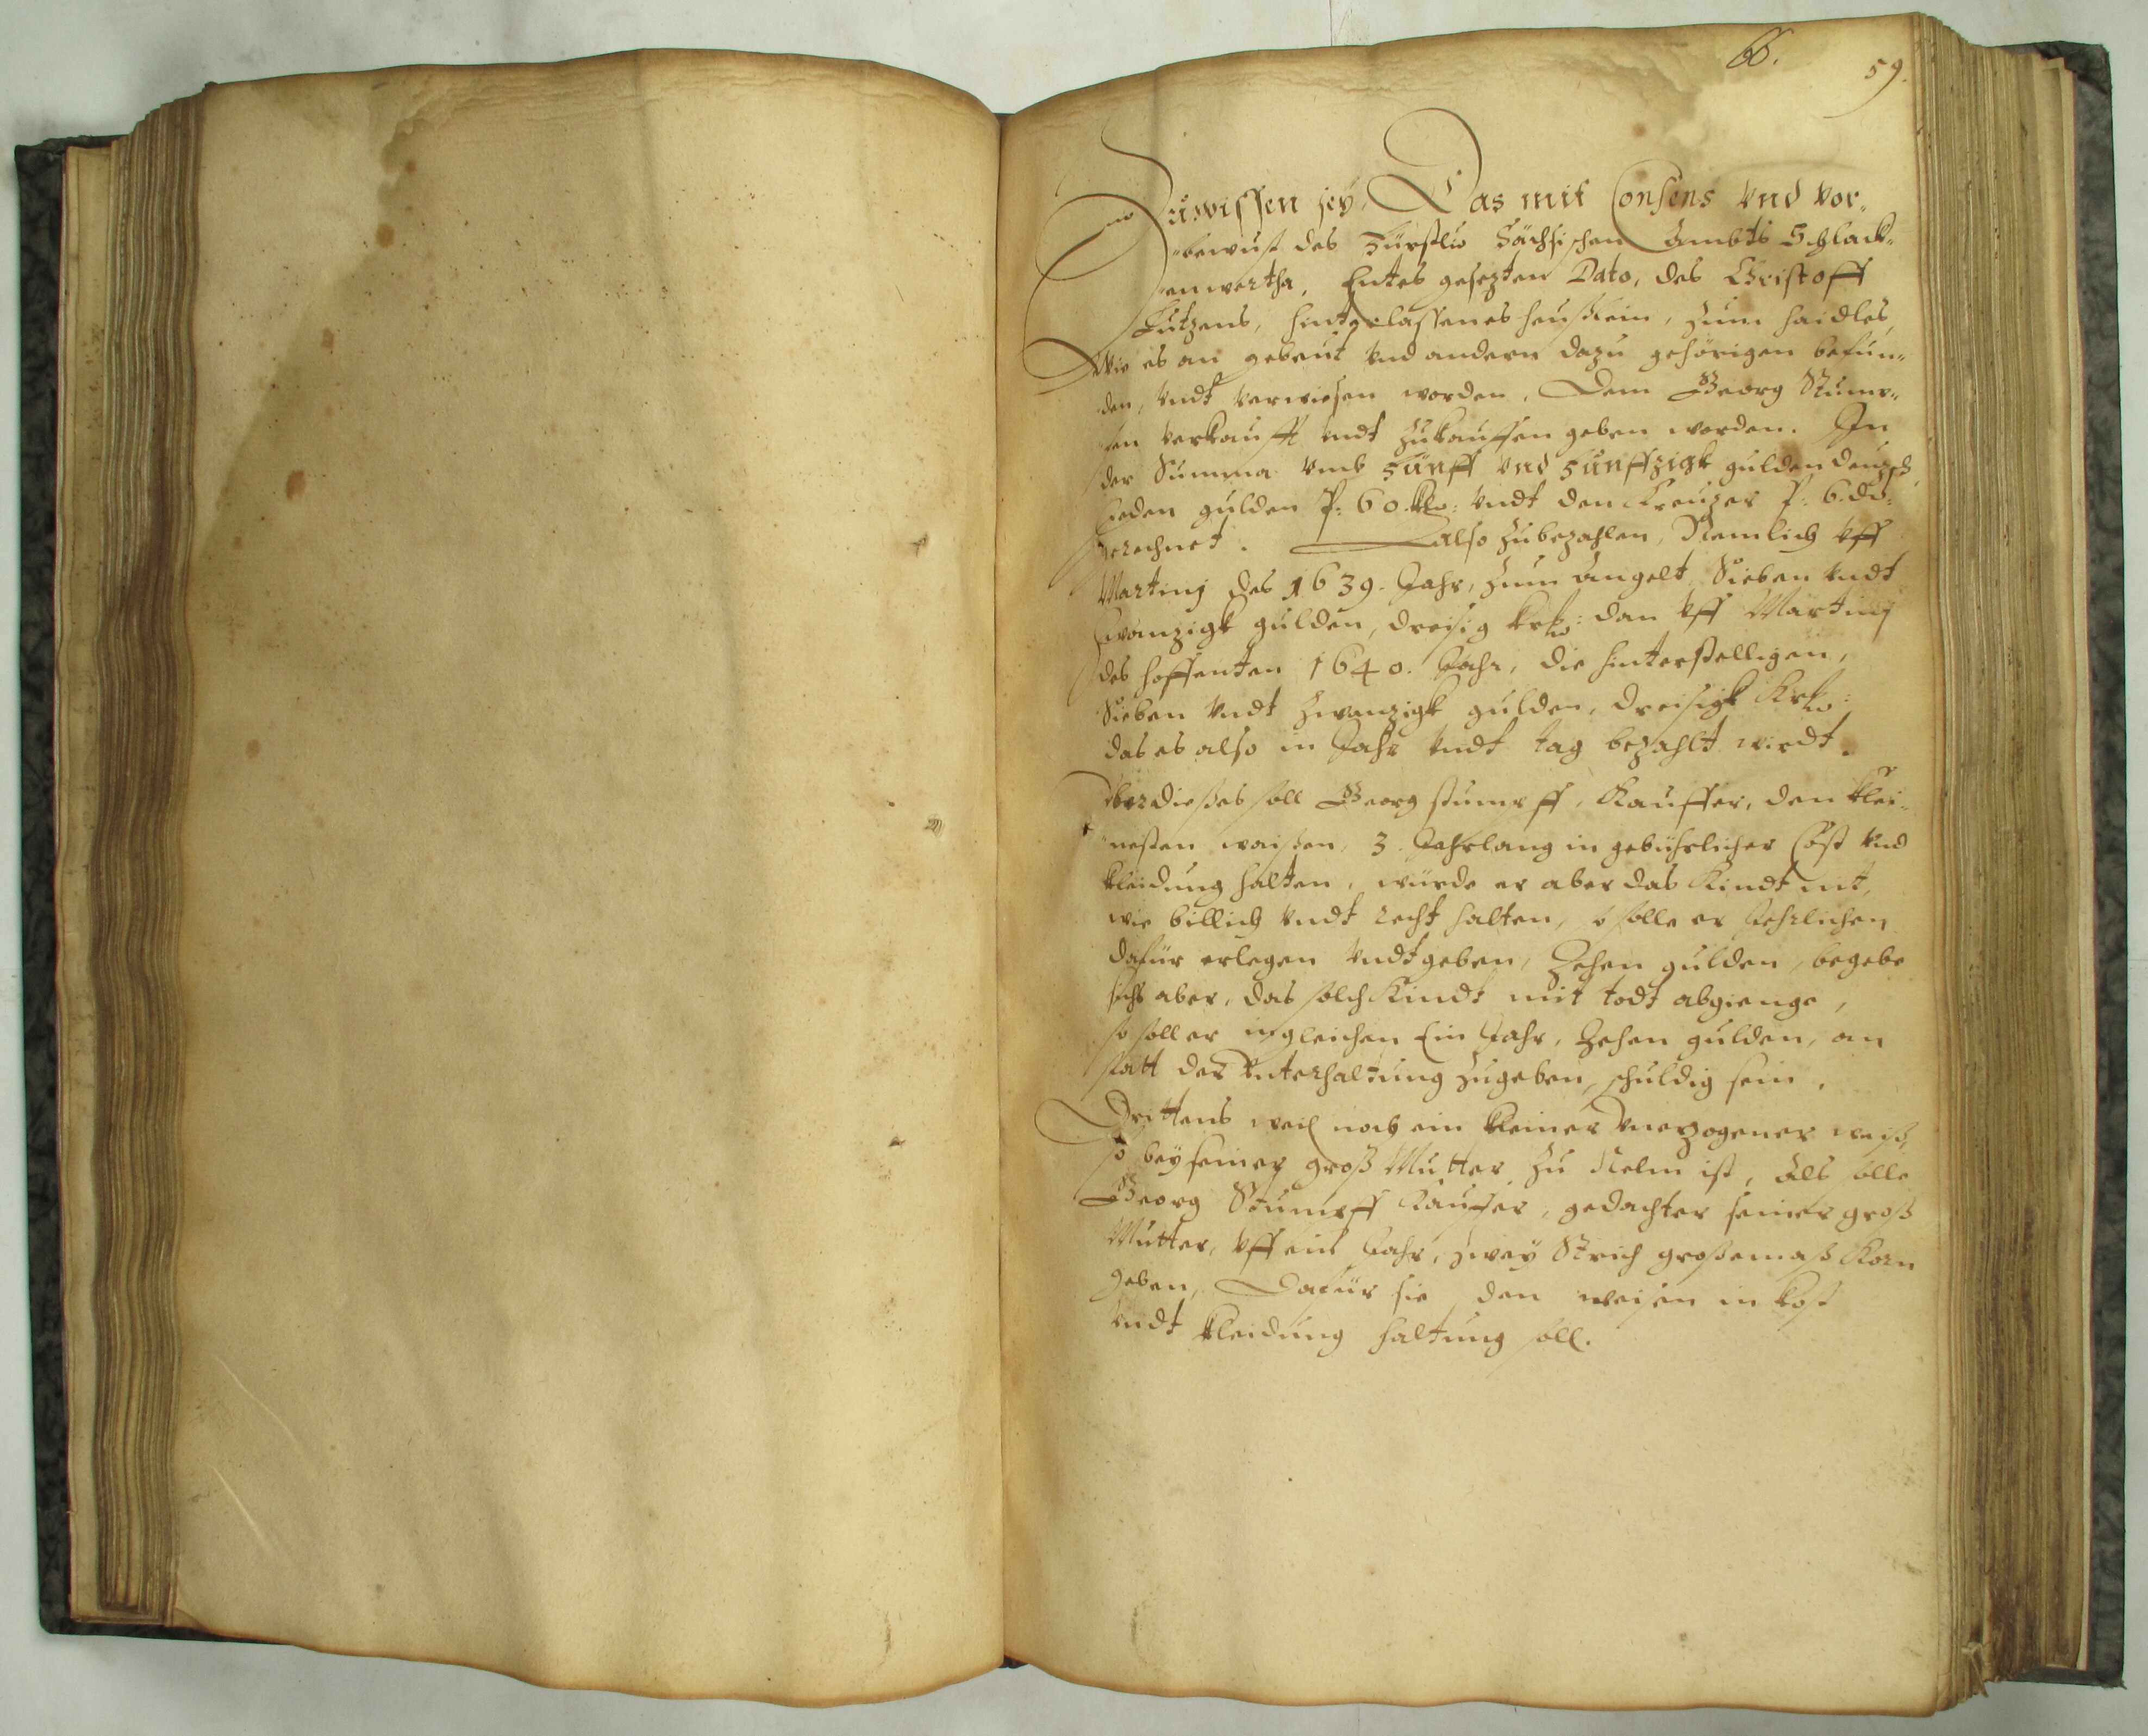 66.
59.
Zuwissen sey, Das mit Consens vnd vor-
bewust des Fürstlich Sächsischen Ambts Schlack-
enwertha, Entes gesezten Dato, des Christoff
Kutzens, hintgelassenes heußlein, zum haidles,
Wie es an gebeut vnd andern dazu gehörigen befun-
den, vndt verwiesen worden, Dem Georg Stumpf-
fen verkaufft vndt zukauffen geben worden. In
der Summa vmb Fünff vnd Fünffzigk gulden deuzsch
jeden gulden P: 60. kr: vndt den Kreuzer P: 6. dn:
gerechnet. also zubezahlen, Nemlich vff
Martinj des 1639. Jahr, zum angelt Sieben vndt
zwanzigk gulden, dreisig kr: dan vff Martinj
des hoffenten 1640. Jahr, die hinterstelligen,
Sieben vndt zwanzigk gulden, dreisigk kr:
das es also in Jahr vndt tag bezahlt wirdt.
Vber dießes soll Georg stumpff, Kauffer, den klei-
nesten waisen, 3. Jahrlang in gebührlicher Cost vnd
kleidung halten, würde er aber das Kindt nit,
wie billich vndt recht halten, solle er Jehrlichen
dafür erlegen vndt geben, Zehen gulden, begebe
sichs aber, das solch Kindt mit todt abgienge,
so soll er ingleichen Ein Jahr, Zehen gulden, an
statt der Vnterhaltung zugeben, schuldig sein.
Drittens weil noch ein kleiner vnerzogener waiß,
so bey seiner groß Mutter zu ist, als solle
Georg Stumpff Kauffer, gedachter seiner groß
Mutter, vff ein Jahr, zwey Strich großemaß Korn
geben, Dafür sie den weisen in kost
vndt kleidung haltung soll.